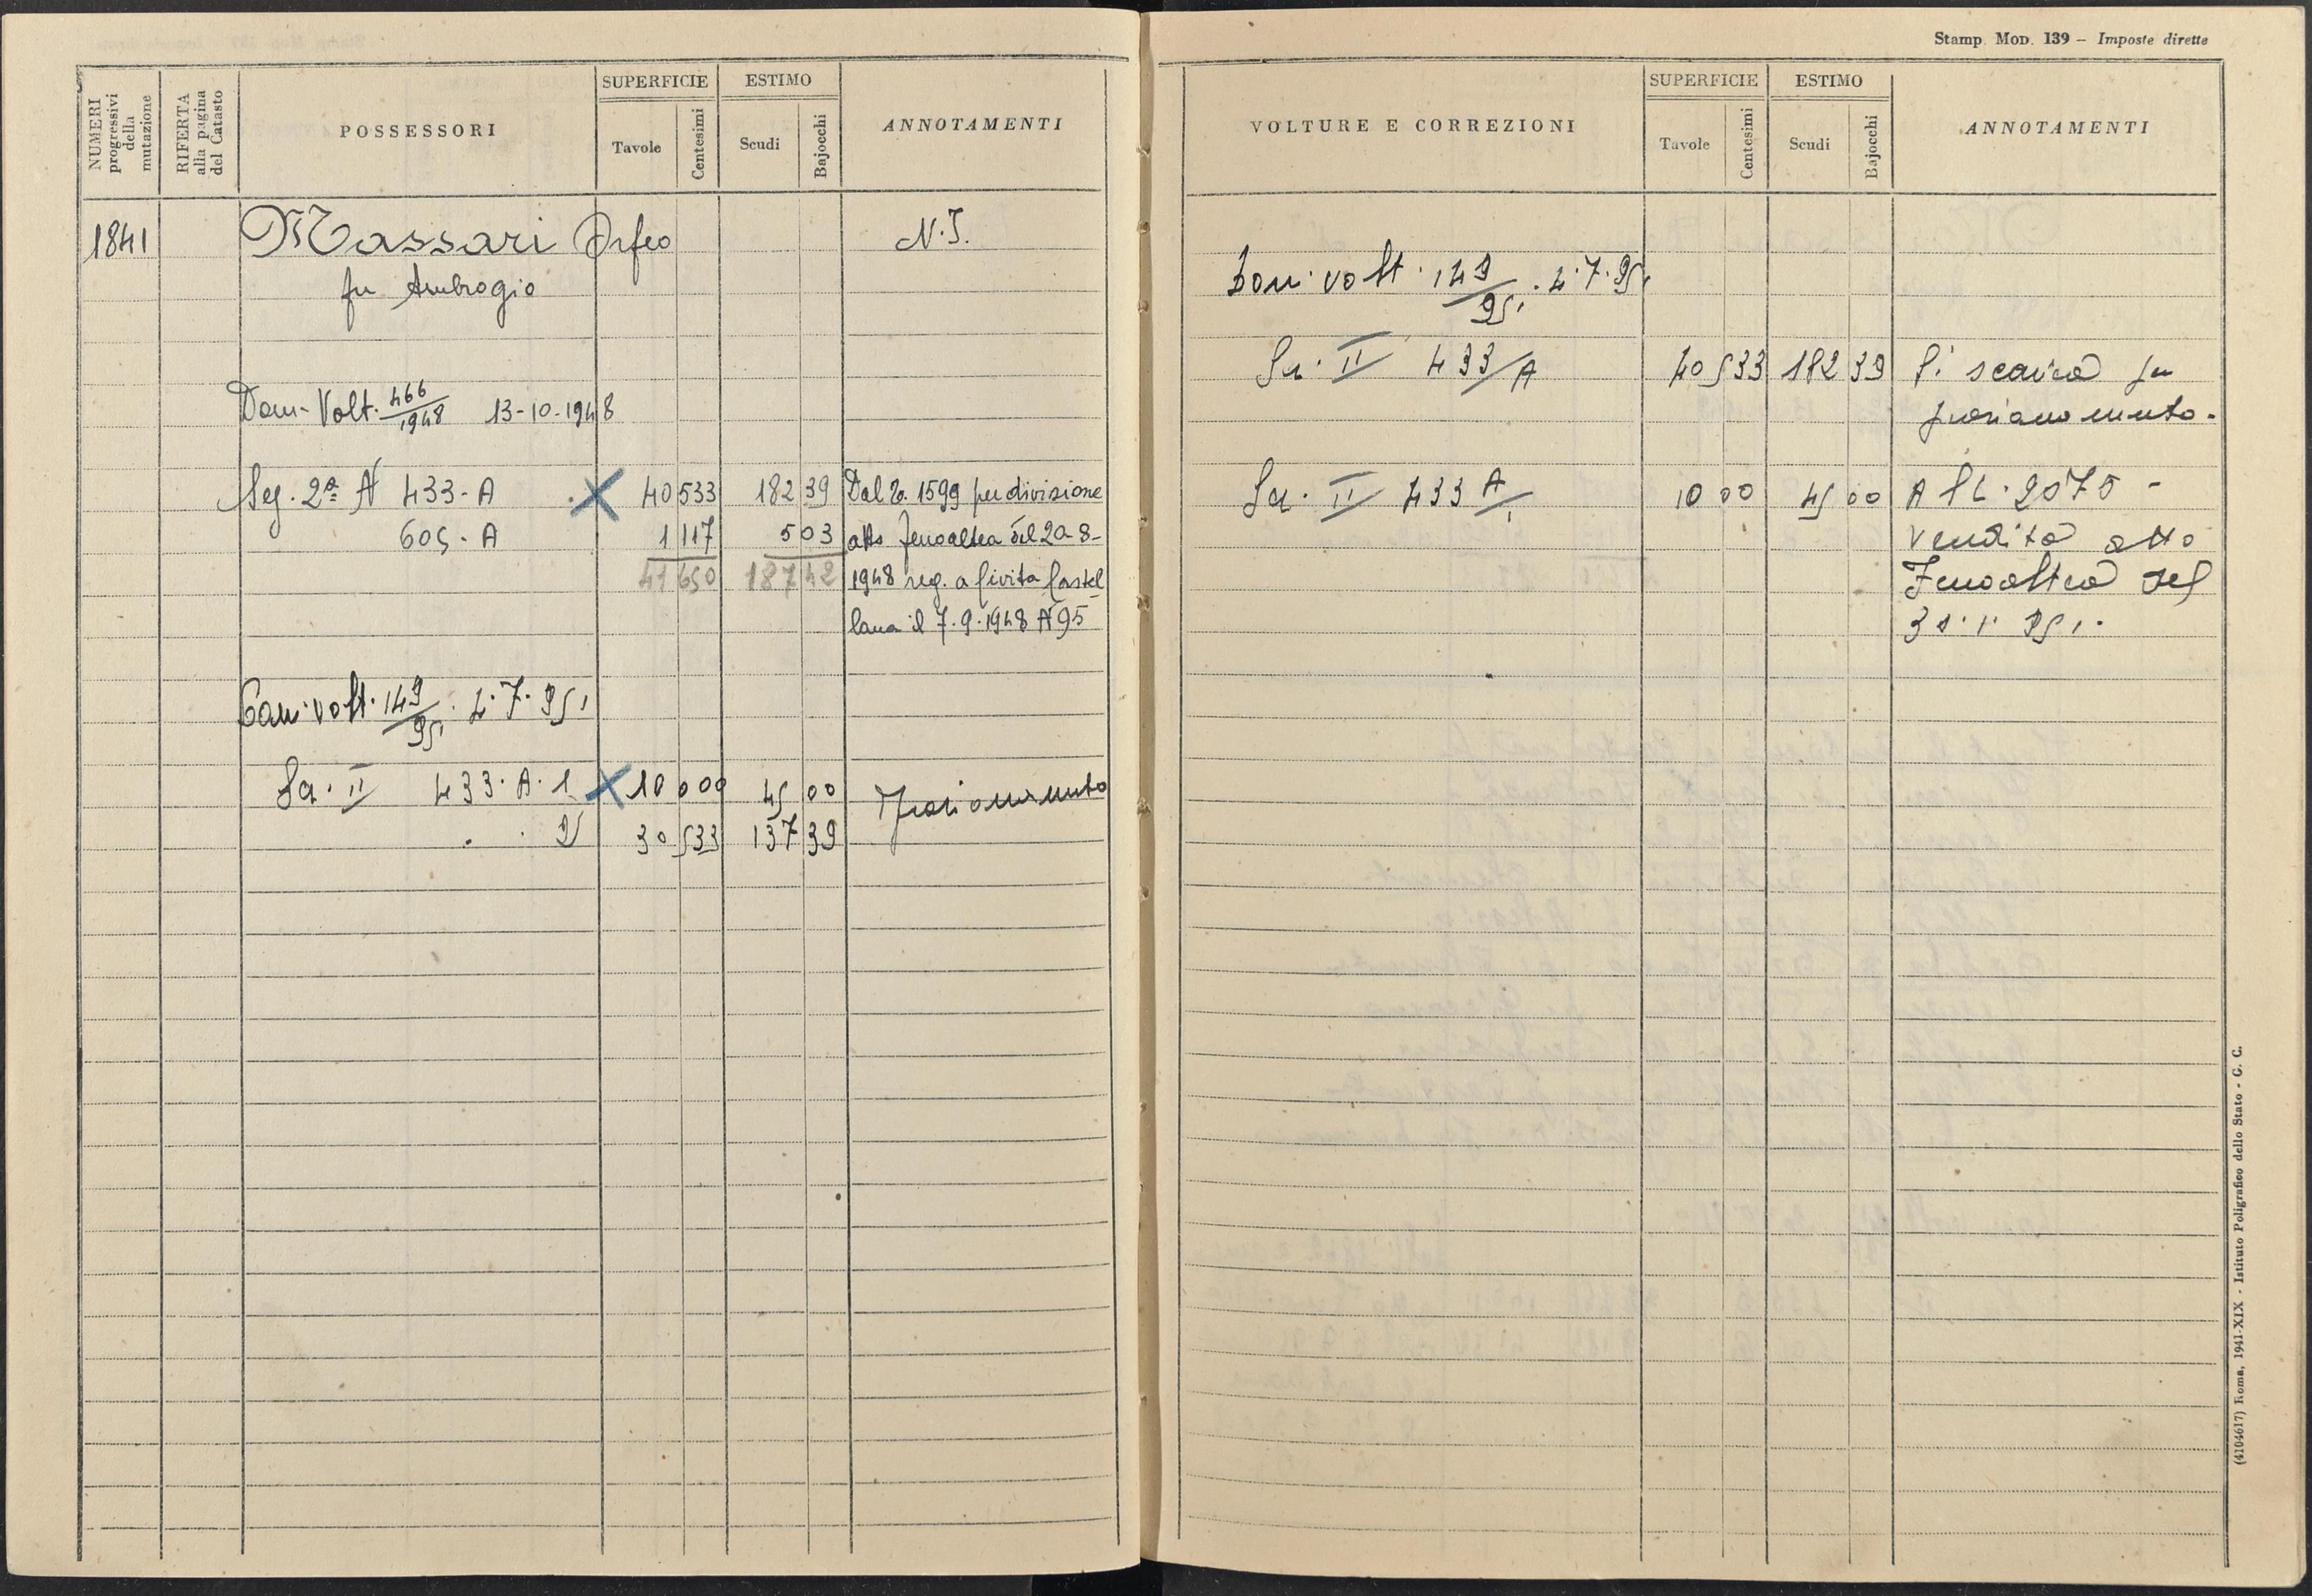 NUMERI progressivi della mutazione
RIFERTA alla pagina del Catasto
POSSESSORI
SUPERFICIE
Tavole
Centesimi
ESTIMO
Scudi
Bajocchi
ANNOTAMENTI
1841 Massari Orfeo N.I.
fu Ambrogio
Dom. Volt. 466/1948 13-10-1948
Seg. 2ª N 433-A X 40 533 182 39 Dal N. 1599 per divisione
605-A 1 117 5 03 atto Fenoaltea del 20-8-
41 650 187 42 1948 reg. a Civita Castel
lana il 7.9.1948 N 95
Dom. volt. 149/951. 2.7.951
Se. II 433.A.1 X 10 000 45 00 Frazionamento
. . 2 30 533 137 39
Stamp. Mod. 139 – Imposte dirette
VOLTURE E CORREZIONI
SUPERFICIE
Tavole
Centesimi
ESTIMO
Scudi
Bajocchi
ANNOTAMENTI
Dom. volt. 149/951. 2.7.951
Se. II 433/A 40 533 182 39 Si scarica per
frazionamento.
Se. II 433 A/1 10 00 45 00 A 2075 -
vendita atto
Fenoaltea del
31.1.951.
(4104617) Roma, 1941-XIX - Istituto Poligrafico dello Stato - G. C.